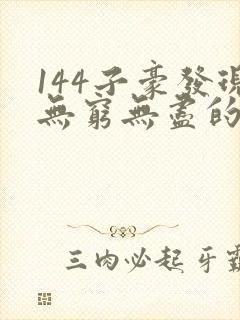 144子豪發現
無窮無盡的
三肉必起牙霸